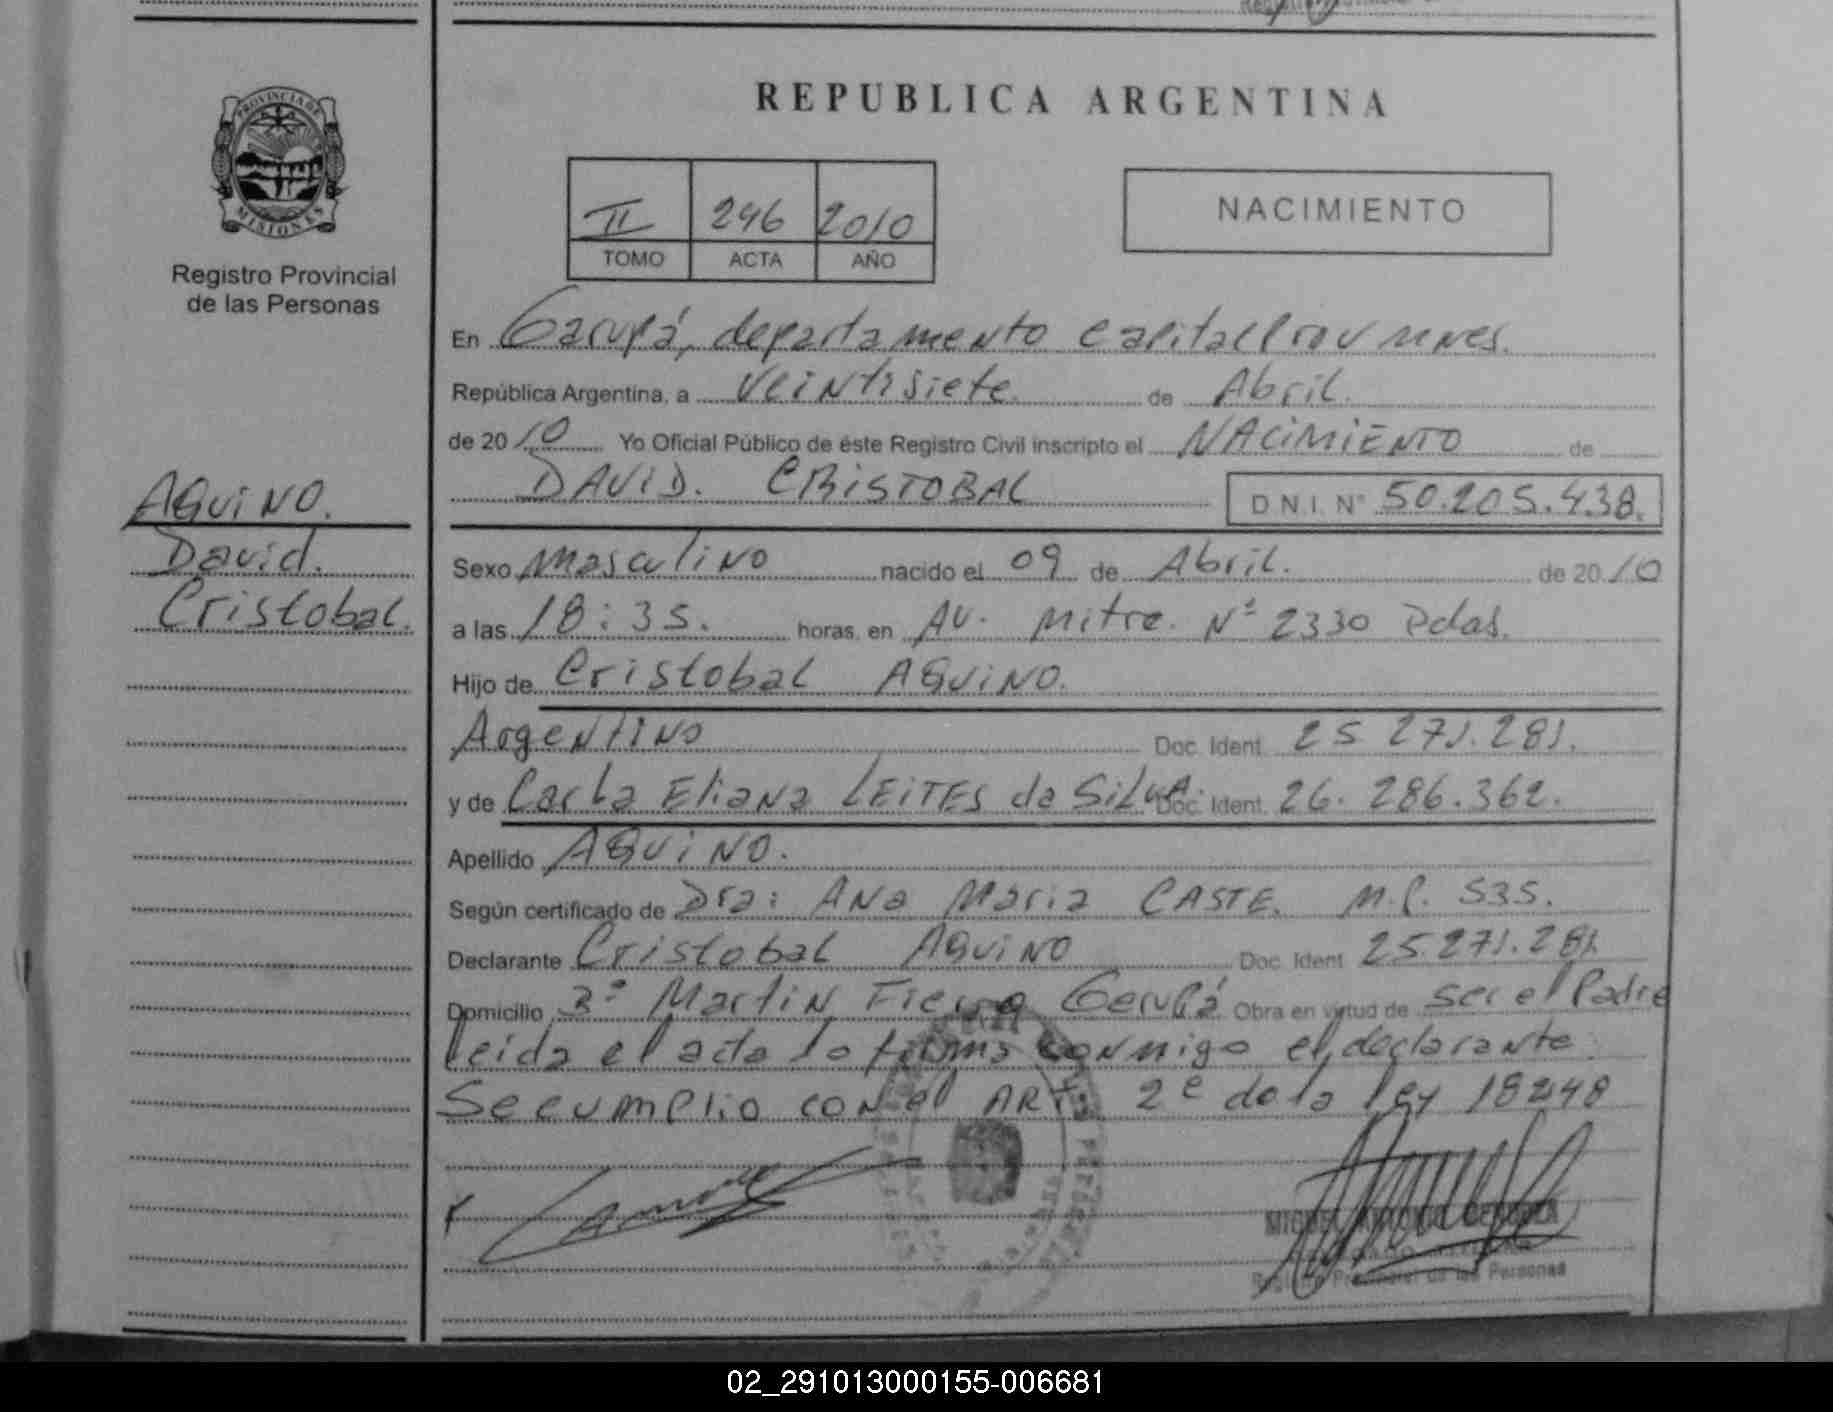 REPUBLICA ARGENTINA
PROVINCIA DE MISIONES
Registro Provincial
de las Personas
II 246 2010
TOMO ACTA AÑO
NACIMIENTO
En Garupá, departamento capital misiones.
República Argentina, a veintisiete de Abril.
de 2010 Yo Oficial Público de éste Registro Civil inscripto el NACIMIENTO de
DAVID. CRISTOBAL D.N.I. N° 50.205.438.
AQUINO.
David.
Cristobal.
Sexo Masculino nacido el 09 de Abril. de 2010
a las 18:35. horas, en Av. Mitre. N° 2330 Pdas.
Hijo de Cristobal AQUINO.
Argentino Doc. Ident. 25 271.281.
y de Carla Eliana LEITES da SILVA. Doc. Ident. 26.286.362.
Apellido AQUINO.
Según certificado de Dra: Ana Maria CASTE. M.P. 535.
Declarante Cristobal AQUINO Doc. Ident 25.271.281
Domicilio B° Martin Fierro Garupá Obra en virtud de ser el Padre
leida el acta la firma conmigo el declarante.
Se cumplio con el ART. 2° de la ley 18248
MIGUEL ANTONIO
Registro Provincial de las Personas
02_291013000155-006681